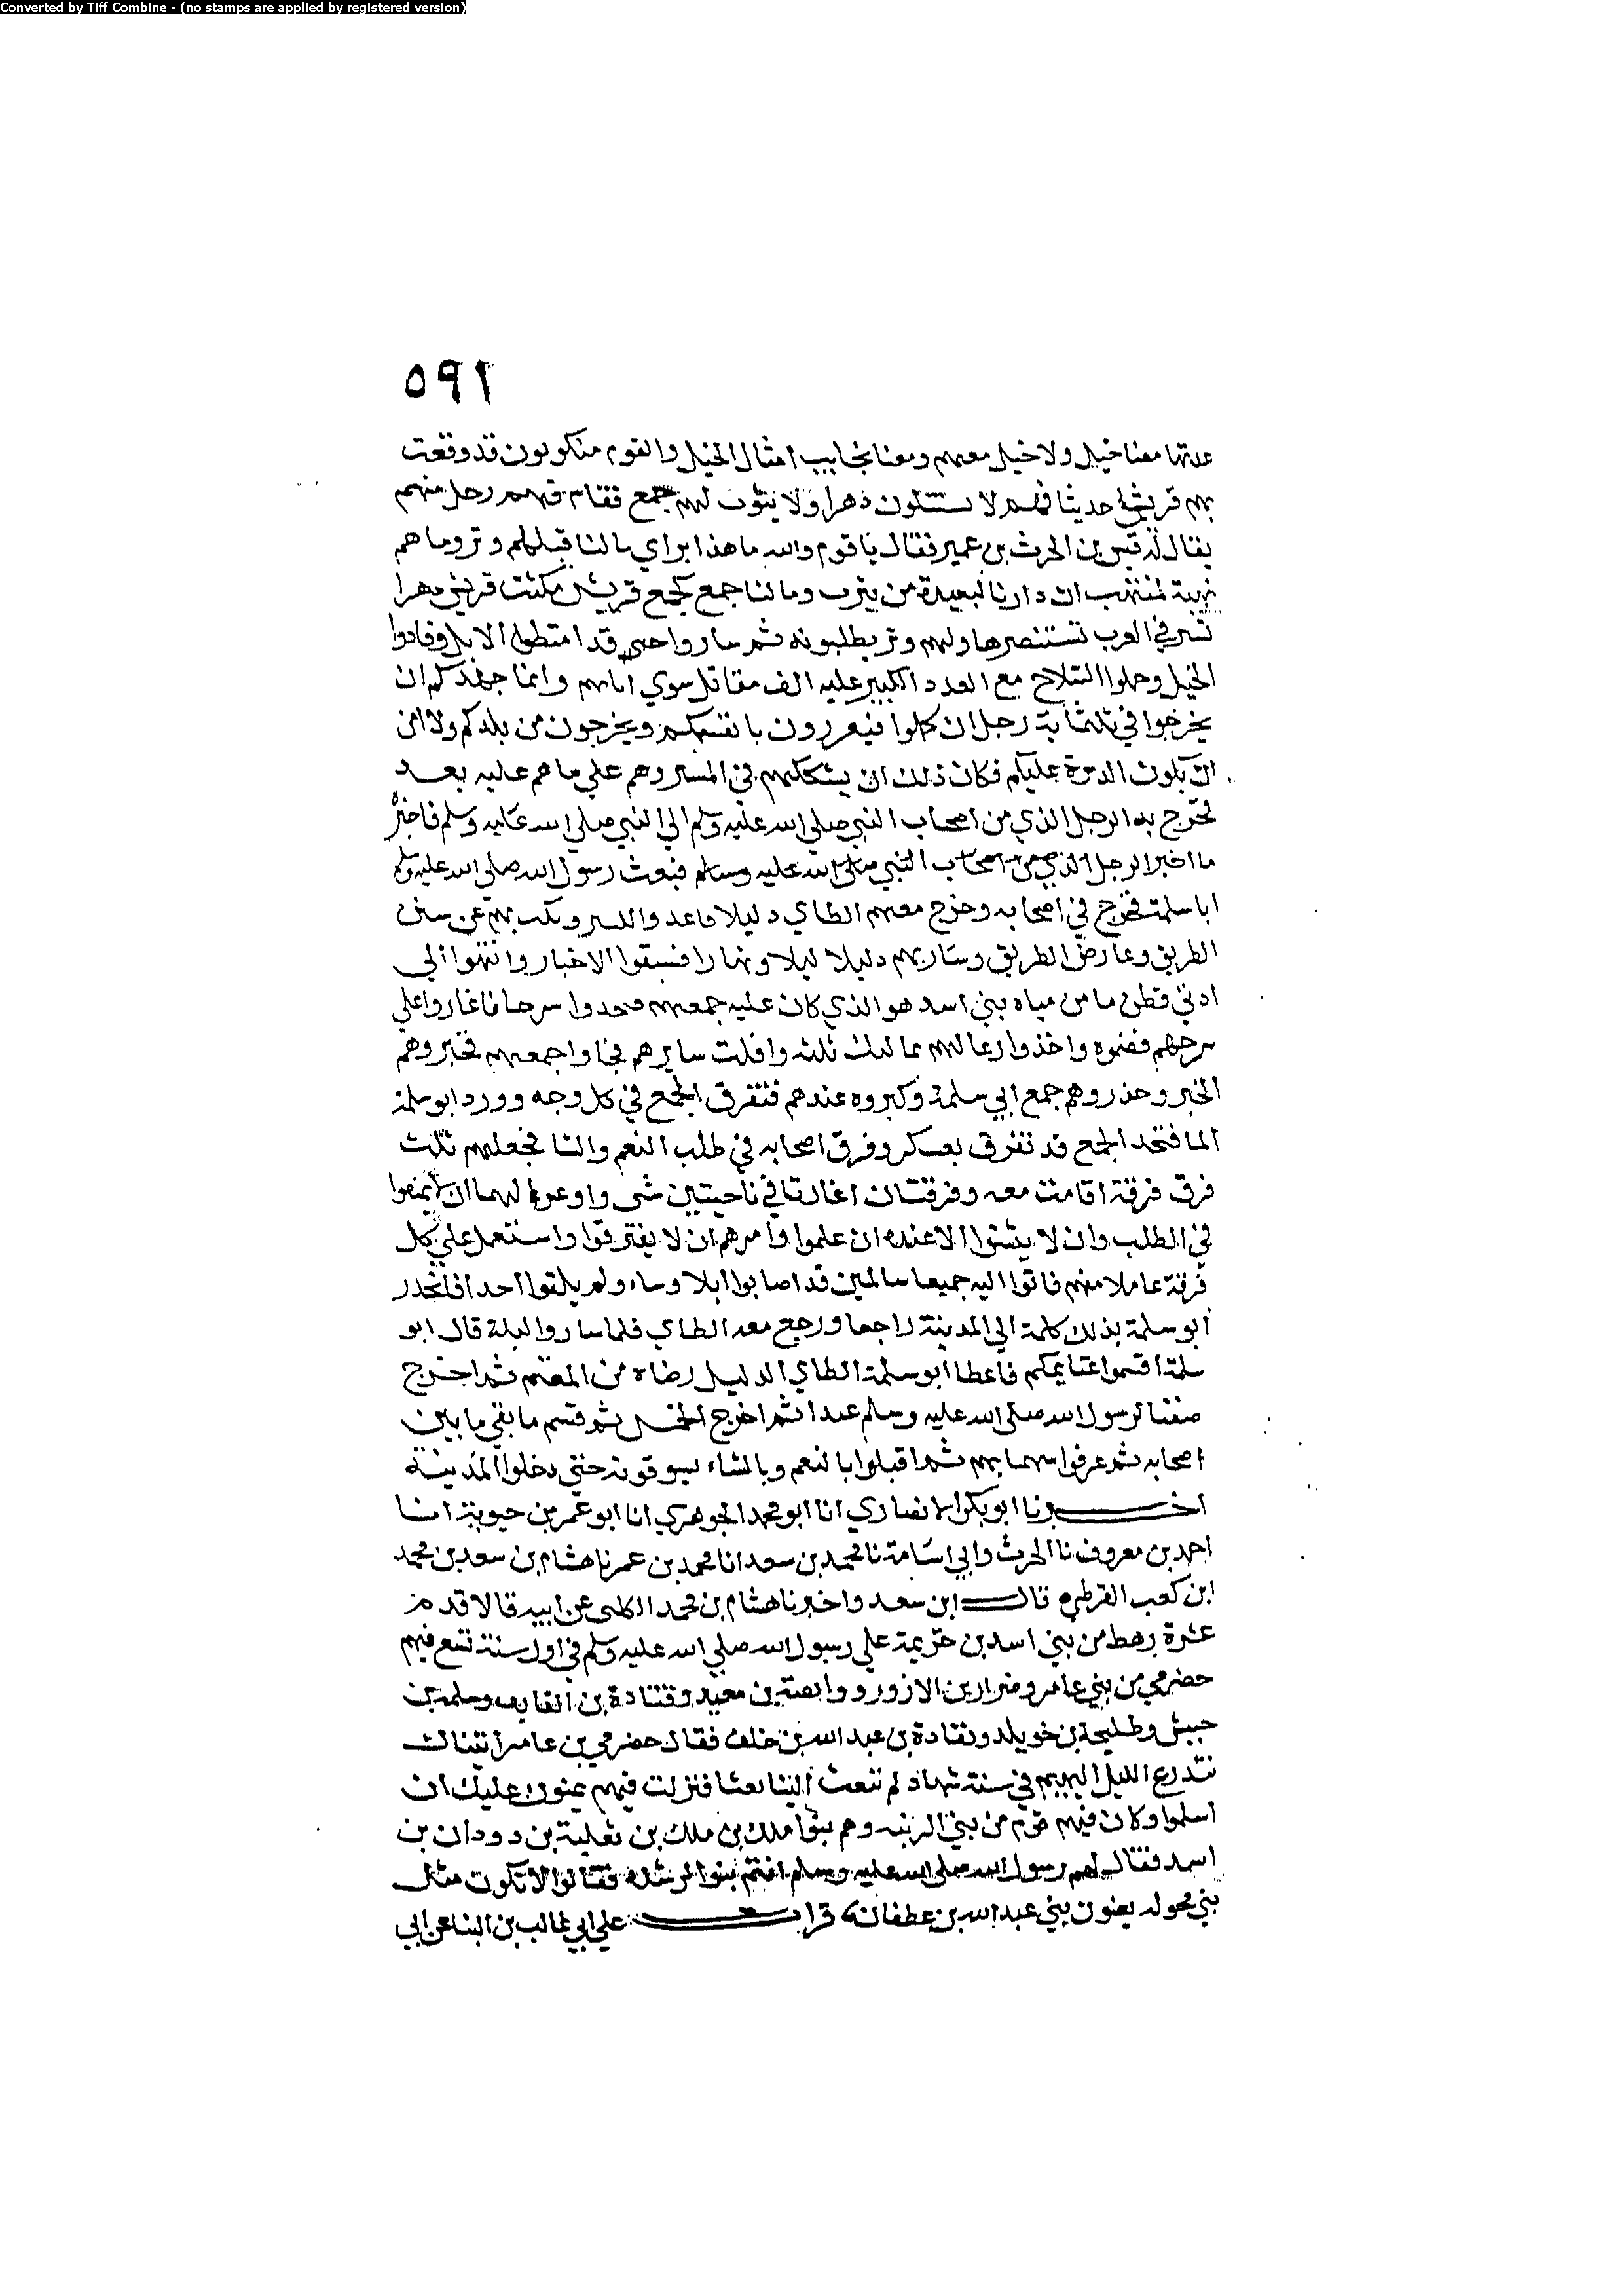 Converted by Tiff Combine - (no stamps are applied by registered version)
٥٩١
معنا خيل ولا خيل معهم ومعنا نجايب امثال الخيل والقوم منكوبون قد وقعت
بهم قريش حديثا فهم لا يستبلون دهرا ولا يثوب لهم جمع فقام فيهم رجل منهم
يقال له قيس بن الحرث بن عمير فقال يا قوم والله ما هذا براي مالنا قبلهم وتر وما هم
نهبة لمنتهب ان دارنا لبعيدة من يثرب وما لنا جمع كجمع قريش مكثت قريش دهرا
تسير في العرب تستنصرها ولهم وتر يطلبونه ثم ساروا حتى قد امتطوا الابل وقادوا
الخيل وحملوا السلاح مع العدد الكبير عليه الف مقاتل سوي اباتهم وانما جهدكم ان
يخرجوا في ثلثماية رجل ان كملوا فيغررون بانفسكم ويخرجون من بلدكم ولا امن
ان يكون الدبرة عليكم فكان ذلك ان يشككهم في المسير وهم علي ما هم عليه بعد
فخرج به الرجل الذي من اصحاب النبي صلي الله عليه وسلم الي النبي صلي الله عليه وسلم فاخبره
ما اخبر الرجل الذي من اصحاب النبي صلى الله عليه وسلم فبعث رسول الله صلي الله عليه وسلم
ابا سلمة فخرج في اصحابه وخرج معهم الطاي دليلا فاغدوا السير ونكب بهم عن سنن
الطريق وعارض الطريق وسار بهم دليلا ليلا ونهارا فسبقوا الاخبار وانتهوا الي
ادني قطن ما من مياه بني اسد هو الذي كان عليه جمعهم فيجدوا سرحا فاغاروا علي
سرحهم فضموه واخذوا رعا لهم مماليك ثلثه وافلت سايرهم فجاوا جمعهم فخبروهم
الخبر وحذروهم جمع ابي سلمة وكبروه عندهم فتفرق الجمع في كل وجه وورد ابو سلمة
الما فيجد الجمع قد تفرق بعسكر وفرق اصحابه في طلب النعم والشا فجعلهم ثلث
فرق فرقة اقامت معه وفرقتان اغارتا في ناحيتين شتى واوعز لهما ان لا يمعنوا
في الطلب وان لا يبيتوا الا عنده ان علموا وامرهم ان لا يفترقوا واستعمل علي كل
فرقة عاملا منهم فاتوا اليه جميعا سالمين قد اصابوا ابلا وشاء ولم يلقوا احدا فانحدر
ابو سلمة بذلك كلمة الي المدينة راجعا ورجع معه الطاي فلما ساروا ليلة قال ابو
سلمة اقسموا غنايمكم فاعطا ابو سلمة الطاي الدليل رضاه من المغنم ثم اخرج
صفيا لرسول الله صلى الله عليه وسلم عبدا ثم اخرج الخمس ثم قسم ما بقي ما بين
اصحابه ثم عرفوا سهمانهم ثم اقبلوا بالنعم وبالشاء يسوقونه حتى دخلوا المدينة
اخبرنا ابو بكر الانصاري انا ابو محمد الجوهري انا ابو عمر بن حيوية انا
احمد بن معروف نا الحرث وابي اسامة نا محمد بن سعد انا محمد بن عمر نا هشام بن سعد بن محمد
ابن كعب القرظي قال ابن سعد واخبرنا هشام بن محمد الكلبي عن ابيه قالا قدم
عشرة رهط من بني اسد بن خزيمة علي رسول الله صلي الله عليه وسلم في اول سنة تسع فيهم
حضرمي بن بني عامر وضرار بن الازور ووابصة بن معبد وقتادة بن القايف وسلمة بن
حبيش وطليحة بن خويلد ونقادة بن عبد الله بن خلف فقال حضرمي بن عامر اتيناك
نتدرع الليل البهيم في سنة شهباء لم تبعث الينا بعثا فنزلت فيهم يمنون عليك ان
اسلموا وكان فيهم قوم من بني الزنيه وهم بنوا ملك بن ملك بن ثعلبة بن دودان بن
اسد فقال لهم رسول الله صلى الله عليه وسلم انتم بنوا الرشدة فقالوا لا نكون مثل
بني محوله يعنون بني عبد الله بن غطفان قرات علي ابي غالب بن البنا عن ابي